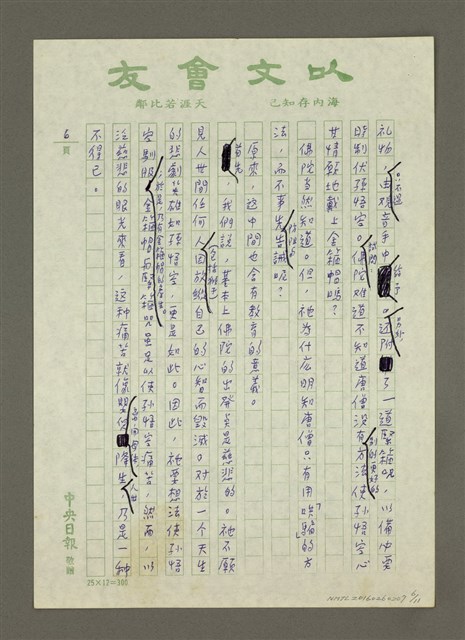 以文會友
海內存知己
天涯若比鄰
禮物，由觀音手中給予。另外，還附了一道緊箍呪，以備必要
時制伏孫悟空。佛陀難道不知道唐僧沒有別的更好的方法使孫悟空心
甘情願地戴上金箍帽嗎？
佛陀当然知道。但，祂为什広明知唐僧只有用哄騙的方
法，而不事先告誡呢？
原來，这中間也含有教育的意義。
首先，我們說，基本上佛陀的出發点是慈悲的。祂不願
見人世間任何人因放縱自己的心智而毀滅。对於一个天生
的悲劇英雄如孫悟空，更是如此。因此，祂要想法使孫悟
空馴服。金箍帽與緊箍呪虽足以使孫悟空痛苦，然而，以
这慈悲的眼光來看，这种痛苦就像嬰兒降生人世，乃是一种
不得已。
6
頁
中央日報
敬贈
25×12=300
NMTL20160260207
6/11